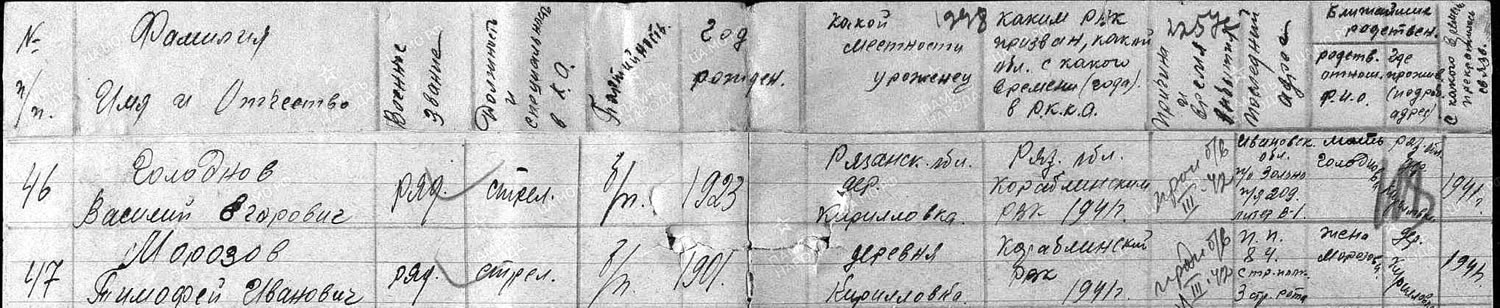 № п/п.
Фамилия
Имя и Отчество
Военное звание
Должность и специальность в К.А.
Партийность
Год рожден.
какой местности уроженец
1948
каким РВК призван, какой обл. с какого времени (года). в Р.К.К.А.
Причина и время выбытия
Последний адрес
Ближайшие родствен.
родств. отнош. Ф.И.О.
где прожив. (подроб. адрес)
С какого времени прекратилась связь.
46
Голоднов
Василий Егорович
ряд.
стрел.
б/п.
1923
Рязанск. обл.
дер.
Кирилловка.
Ряз. обл.
Кораблинским
рвк 1941 г.
проп б/в
III. 42
Ивановск.
обл.
мать
1941г.
47
Морозов
Тимофей Иванович
ряд.
стрел.
б/п.
1901.
деревня
Кирилловка.
Кораблинский
рвк
1941 г.
проп б/в
III. 42
п.п.
84.
3 стр. рота
жена
дер.
1941г.